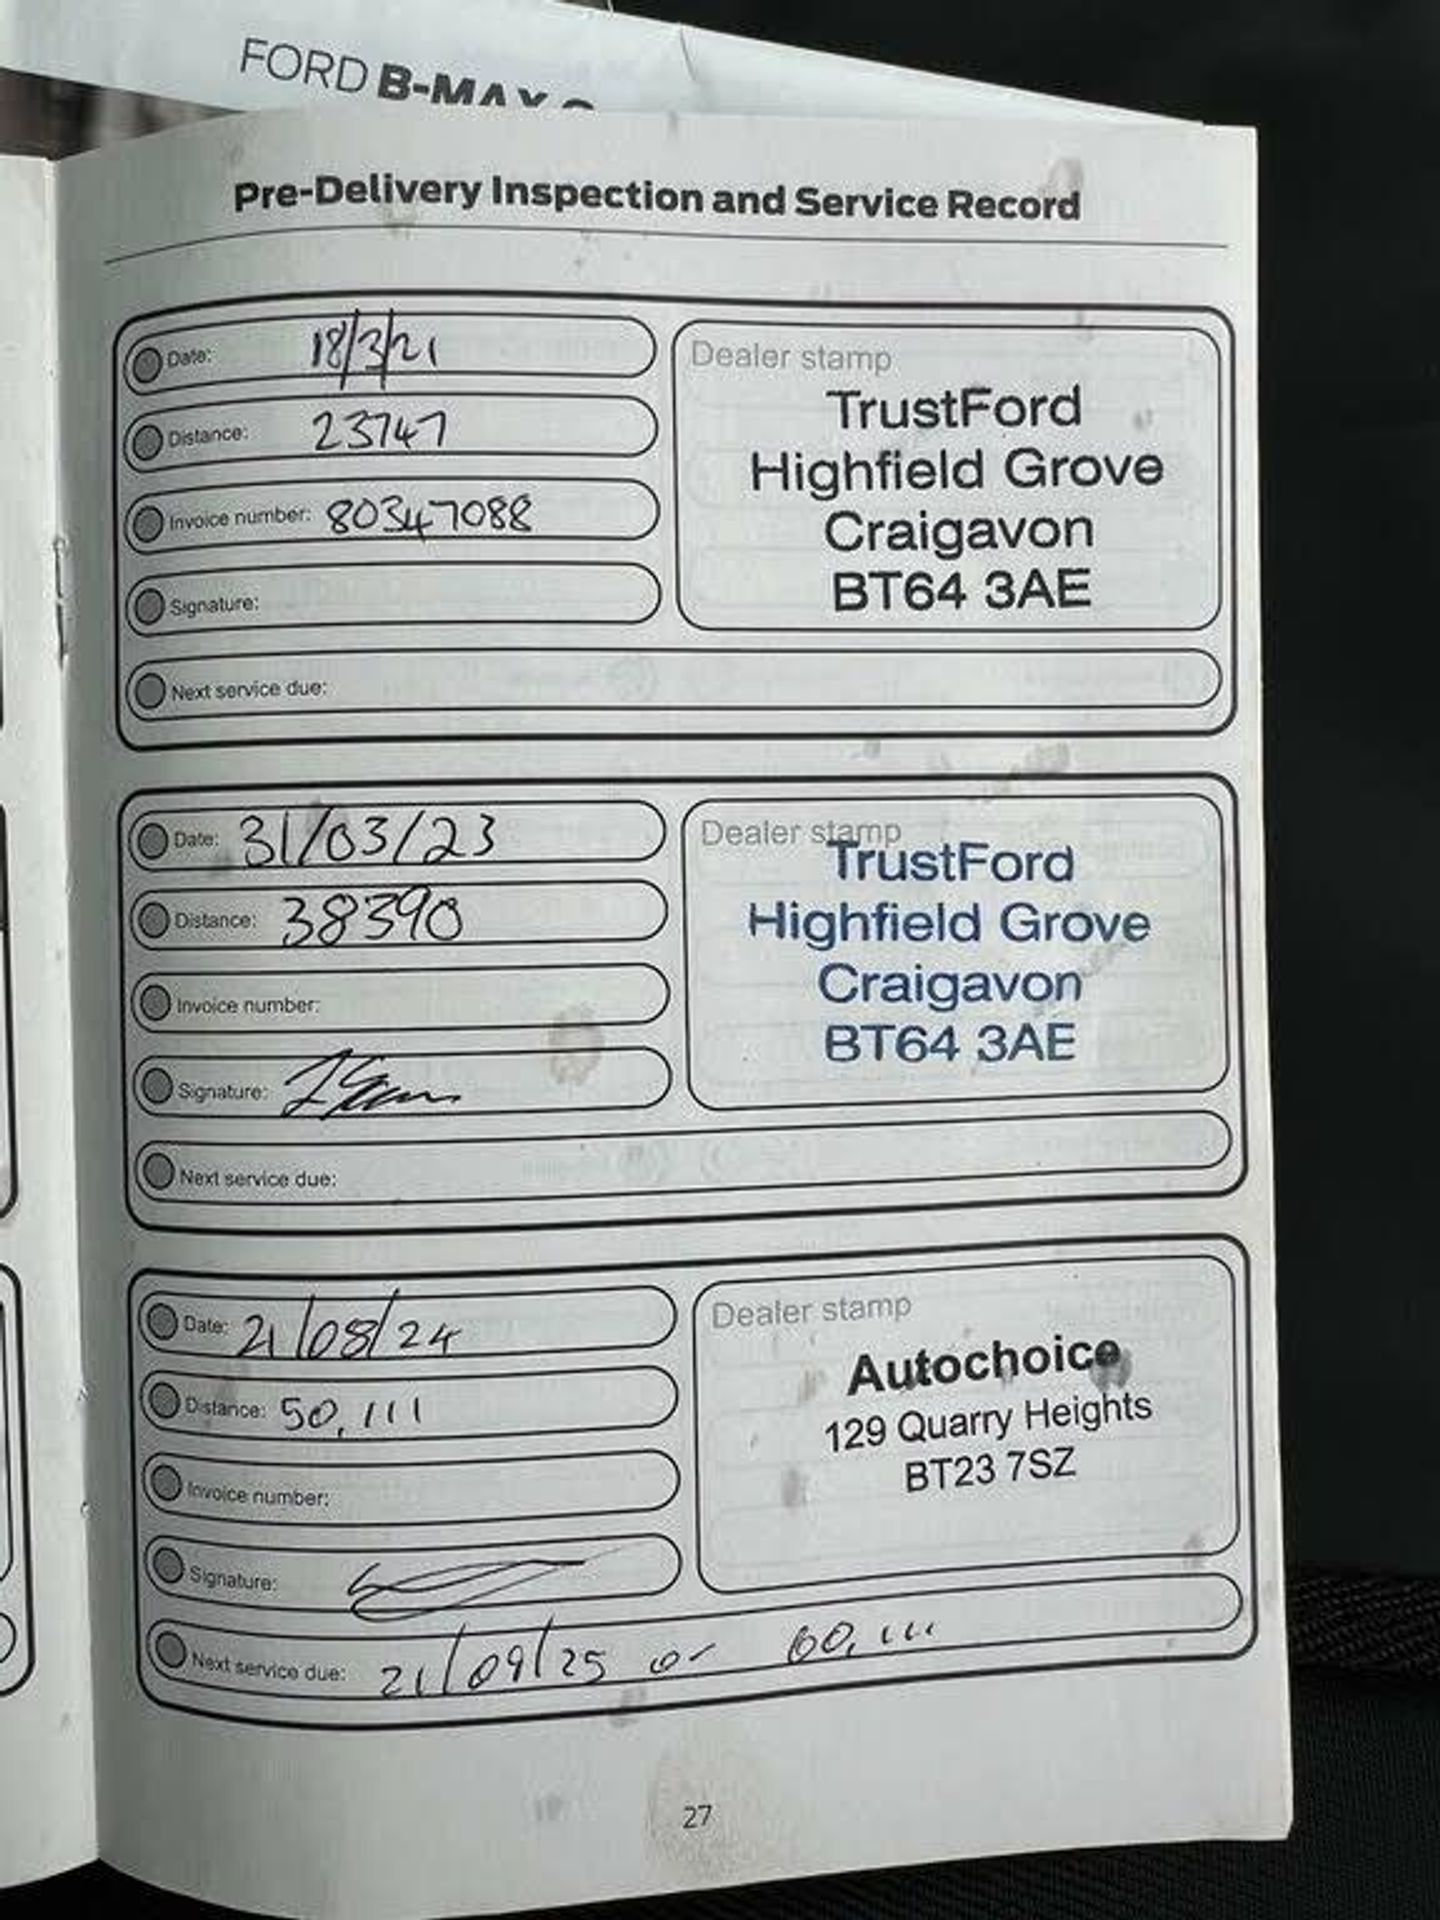 FORD B-MAX
Pre-Delivery Inspection and Service Record
Date: 18/3/21
Distance: 23747
Invoice number: 80347088
Signature:
Next service due:
Dealer stamp
TrustFord
Highfield Grove
Craigavon
BT64 3AE
Date: 31/03/23
Distance: 38390
Invoice number:
Signature:
Next service due:
Dealer stamp
TrustFord
Highfield Grove
Craigavon
BT64 3AE
Date: 21/08/24
Distance: 50,111
Invoice number:
Signature:
Next service due: 21/09/25 or 60,111
Dealer stamp
Autochoice
129 Quarry Heights
BT23 7SZ
27